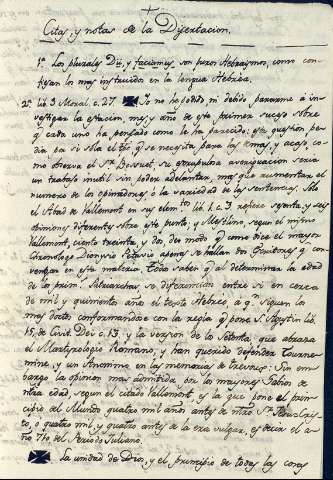 Citas, y notas de la Disertacion.
1ª Los plurales Dii, y faciamus, son puros Hebraismos, como con-
fiesan los mas instruidos en la lengua Hebrea.
2ª lib. 3 Moral. c. 27. Io no he podido, ni debido pararme à in-
vestigar la estacion, mes, y año de este primer suceso sobre
q̃ cada uno ha pensado como le ha parecido: esta question pe-
dia por si sola el tpo q̃ se necesita para las demas, y acaso, co-
mo observa el Sr. Bossuet, su escrupulosa averiguacion seria
un trabajo inutil sin poder adelantar, mas que aumentar el
numero de los opinadores, ò la variedad de las sentencias. Solo
el Abad de Vallemont en sus elemtos lib. 1. c. 3 refiere sesenta, y seis
opiniones diferentes sobre este punto; y Mestlino, segun el mismo
Vallemont, ciento treinta, y dos, de modo q̃ como dice el mayor
Cronologo Dionysio Petavio apenas se hallan dos Escritores q̃ con-
vengan en esta materia. Todos saben q̃ al determinar la edad
de los primos Patriarchas se diferencian entre si en cerca
de mil y quinientos años el texto Hebreo, à q̃ siguen los
mas doctos conformandose con la regla q̃ pone S. Agustin lib.
15 de Civit. Dei c. 13, y la version de los Setenta, que abraza
el Martyrologio Romano, y han querido defender Tourne-
mine, y un Anonimo en las memorias de Trevoux: Sin em-
bargo la opinion mas admitida por los mayores Sabios de
ntra edad, segun el citado Vallemont, es la que pone el prin-
cipio del Mundo quatro mil años antes de ntro Sr. Jesu-Cris-
to, ò quatro mil, y quatro antes de la era vulgar, es decir el a-
ño 710 del Periodo Juliano.
La unidad de Dios, y el principio de todas las cosas